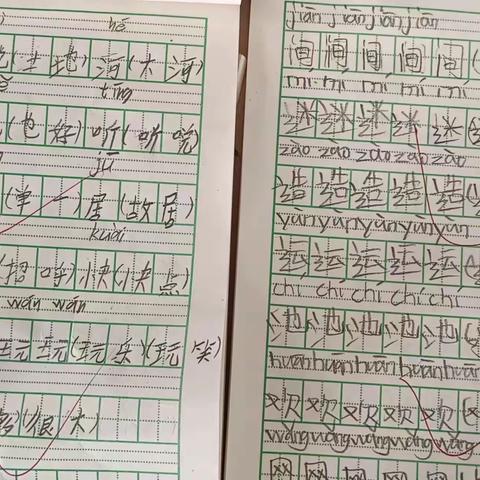 hé
(土地)河(大河)
tīng
(也好)听(听说)
jū
(单一)居(故居)
kuài
(招呼)快(快点)
wán wán
玩玩(玩乐)(玩笑)
(很大)
jiān jiān jiān jiān
间间间间间
mí mí mí mí mí
迷迷迷迷迷
zào zào zào zào zào
造造造造造
yùn yùn yùn yùn yùn
运运运运运
chí chí chí chí chí
池池池池池
huān huān huān huān huān
欢欢欢欢欢
wǎng wǎng wǎng wǎng wǎng
网网网网网